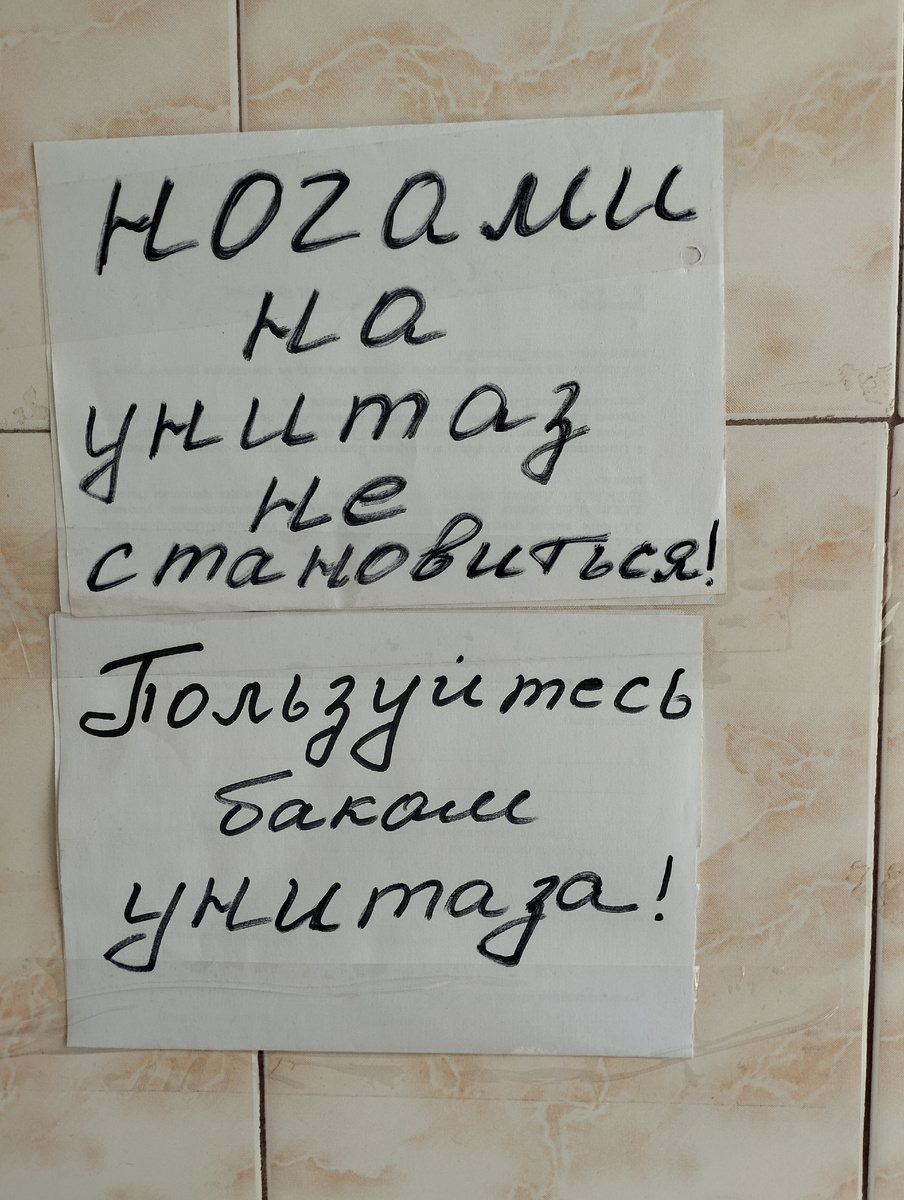 ногами
на
унитаз
не
становиться!
Пользуйтесь
баком
унитаза!